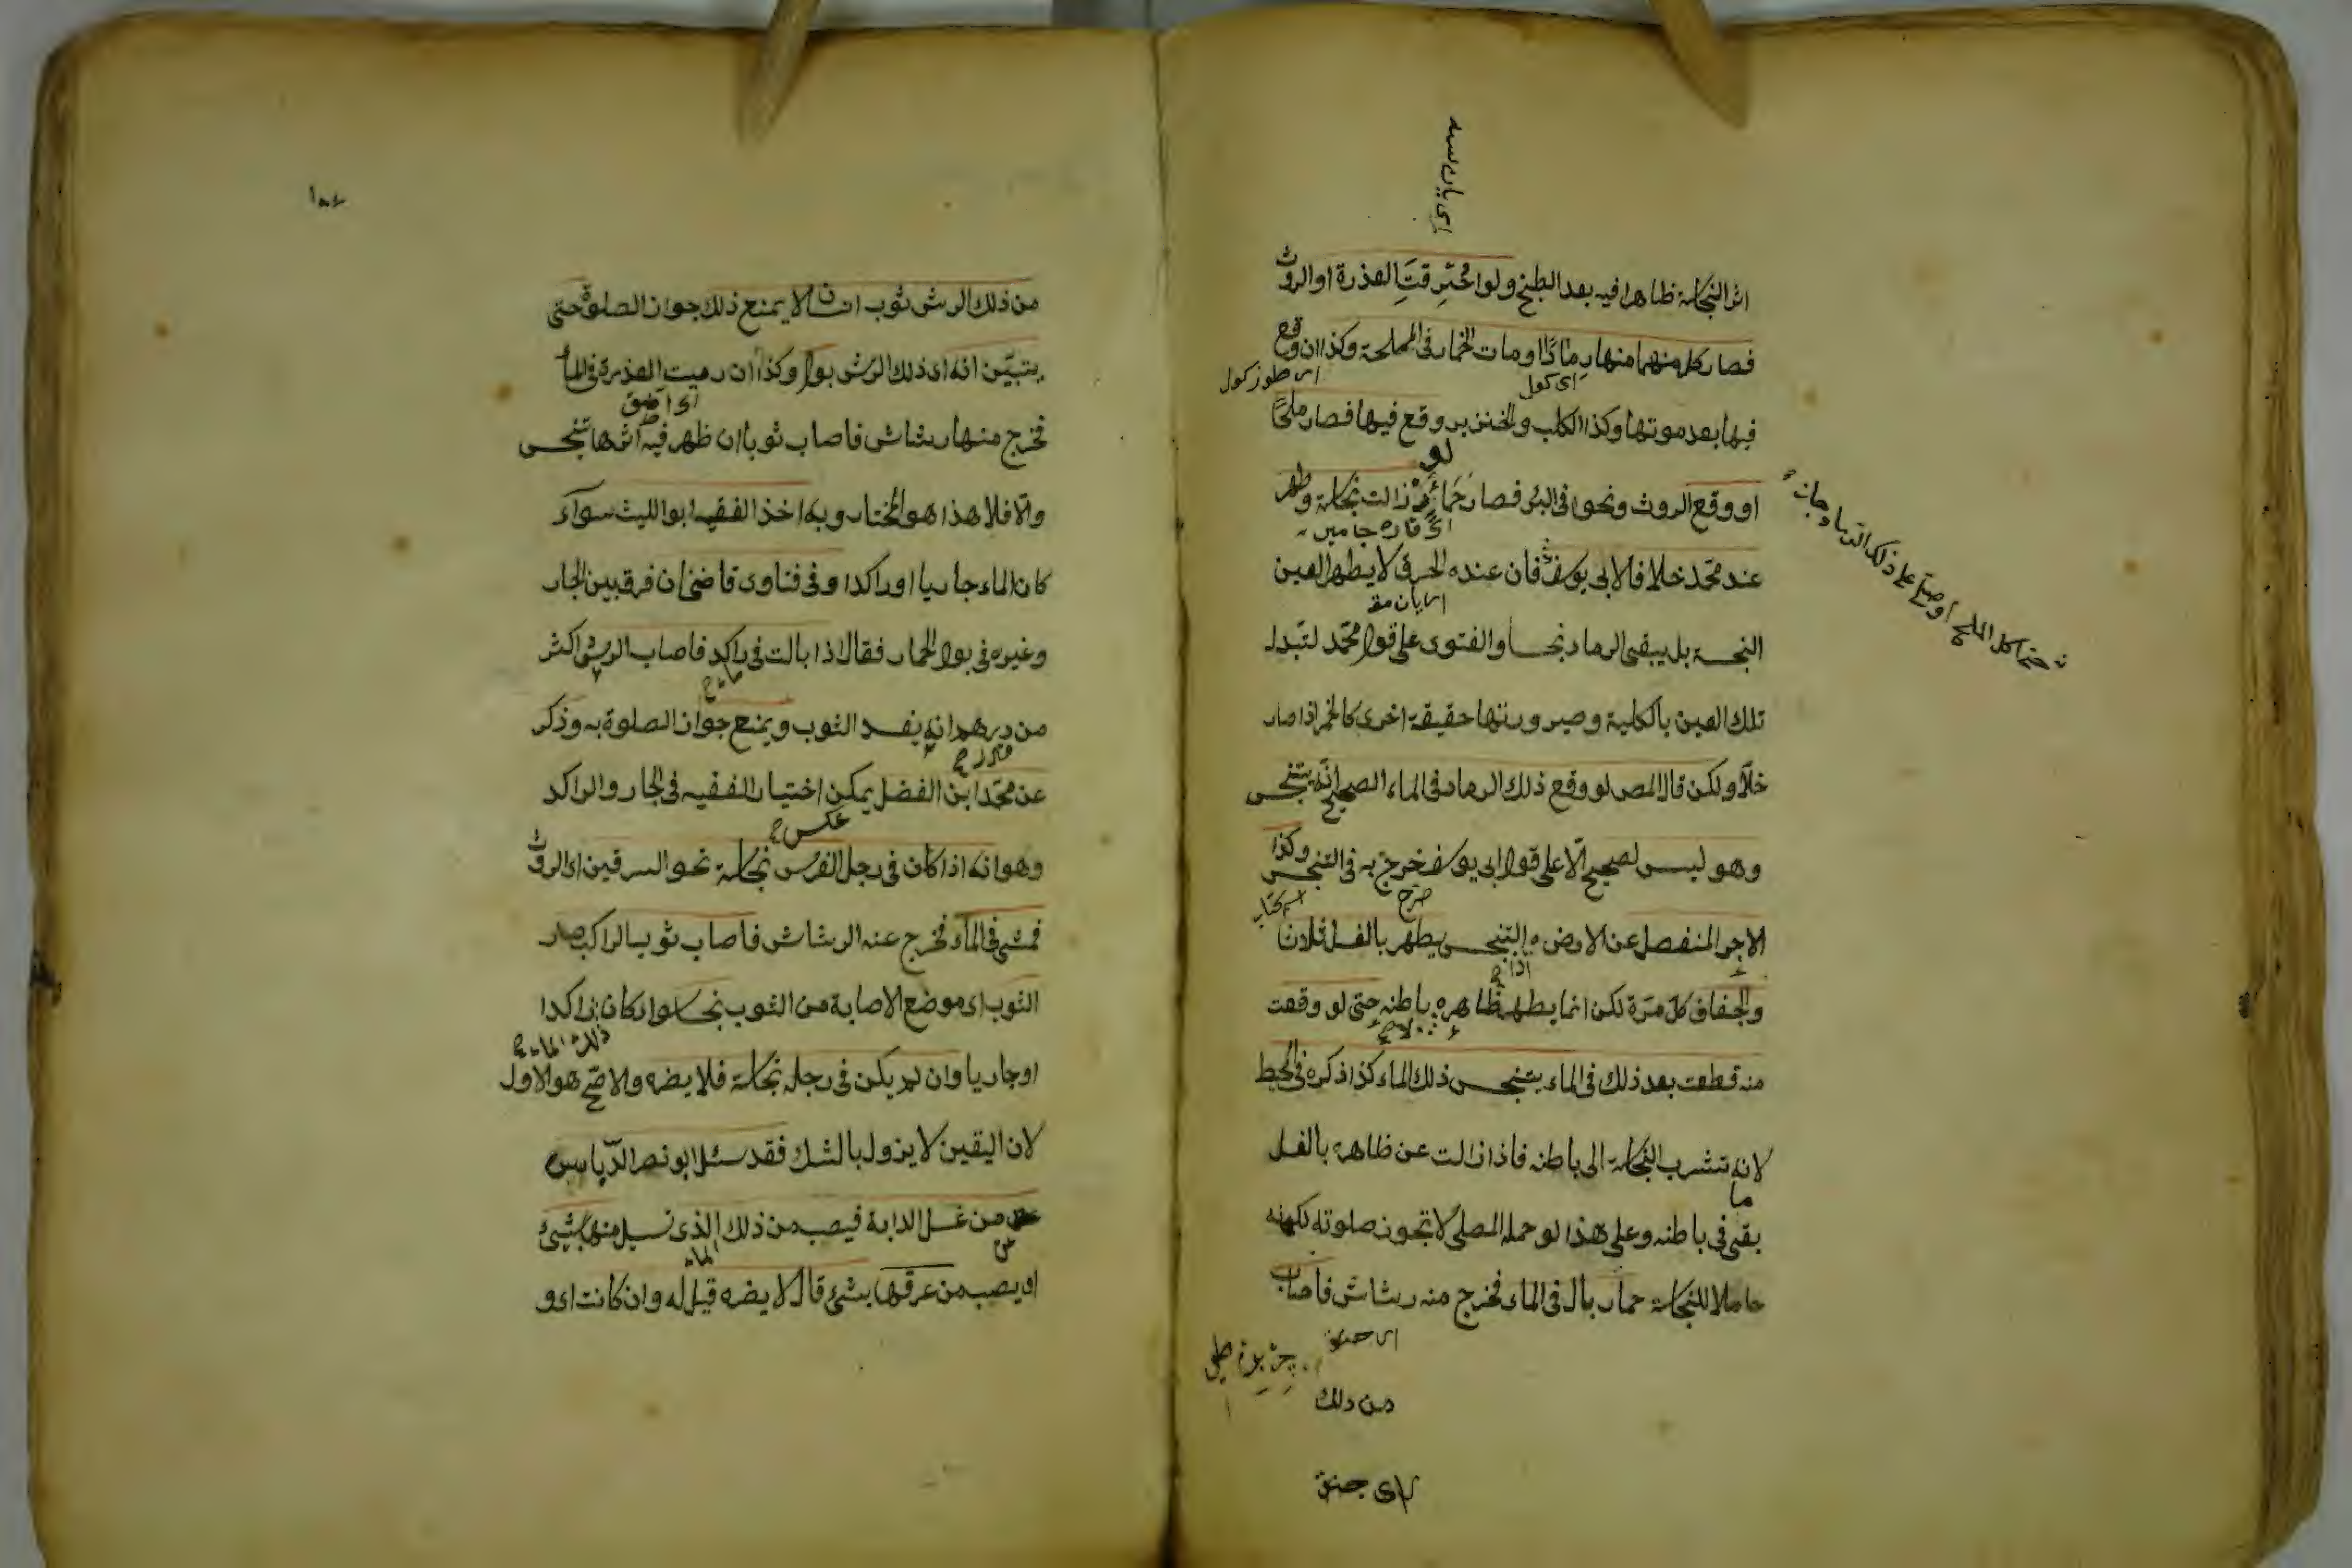 اثر النجاسة ظاهرا فيه بعد الطبخ ولو احترقت العذرة او الروث
فصار كل منهما منها رمادًا او مات الحمار في المملحة وكذا ان وقع
اى كول
فيها بعد موتها وكذا الكلب والخنزير وقع فيها فصار ملحًا
لو
او وقع الروث ونحوه فى البئر فصار حمأة زالت نجاسته وطهر
عند محمّد خلافا لابى يوسف فان عنده الحرق لا يطهر العين
النجسة بل يبقى الرماد نجسا والفتوى على قول محمّد لتبدل
تلك العين بالكلية وصيرورتها حقيقة اخرى كالخمر اذا صار
خلّا ولكن قال المص لو وقع ذلك الرماد فى الماء الصحيح انّه يتنجس
وهو ليس لصحيح الّا على قول ابى يوسف خرج به فى التنجس وكذا
الاجر المنفصل عن الارض التنجس يطهر بالغسل ثلاثا
والجفاف كل مرّة لكن انما يطهر ظاهره باطنه حتى لو وقعت
منه قطعة بعد ذلك فى الماء يتنجس ذلك الماء كذا ذكره فى المحيط
لانه تتشرب النجاسة الى باطنه فاذا زالت عن ظاهره بالغسل
ما
بقى فى باطنه وعلى هذا لو حمله المصلى لا تجوز صلوته لكونه
حاملا للنجاسة حمار بال فى الماء فخرج منه رشاش فاصاب
من ذلك
من ذلك الرش ثوب انسان لا يمنع ذلك جواز الصلوة حتى
يتبيّن انه اى ذلك الرش بول وكذا ان رميت العذرة فى الماء
فخرج منها رشاش فاصاب ثوبا ان ظهر فيه اثرها تنجس
والّا فلا هذا هو المختار وبه اخذ الفقيه ابو الليث سوآء
كان الماء جاريا او راكدا وفى فتاوى قاضيخان فرق بين الجار
وغيره فى بول الحمار فقال اذا بالت فى راكد فاصاب الرش اكثر
من درهم انه يفسد الثوب ويمنع جواز الصلوة به وذكر
عن محمّد ابن الفضل يمكن اختيار الفقيه فى الجار والراكد
عكس
وهو انه اذا كان فى رجل الفرس نجاسة نحو السرقين اى الروث
فمشى فى الماء فخرج عنه الرشاش فاصاب ثوب الراكب صار
الثوب اى موضع الاصابة من الثوب نجسا سوا كان راكدا
ذلك الماء
او جاريا وان لم يكن فى رجله نجاسة فلا يضره والاصح هو الاول
لان اليقين لا يزول بالشك فقد سئل ابو نصر الدّباس
من غسل الدابة فيصيب من ذلك الذى تسيل منها شئ
الماء
او يصيب من عرقها بشئ قال لا يضره قيل له وان كانت او